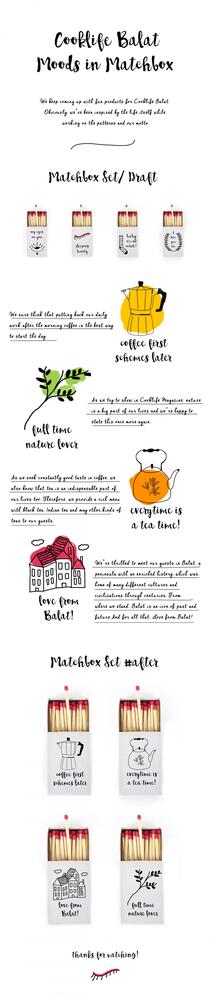 Cooklife Balat
Moods in Matchbox
We keep coming up with fun products for Cooklife Balat.
Obviously, we've been inspired by the life itself while
working on the patterns and our motto.
Matchbox Set/ Draft
my eyes
on you
sleeping
beauty
baby
it's cold
outside
We sure think that putting back our daily
work after the morning coffee is the best way
to start the day.
coffee first
schemes later
As we try to show in Cooklife Magazine, nature
is a big part of our lives and we're happy to
state this once more again.
full time
nature lover
As we seek constantly good taste in coffee, we
also know that tea is an indispensable part of
our lives too. Therefore, we provide a rich menu
with black tea, Indian tea and many other kinds of
teas to our guests.
everytime is
a tea time!
We're thrilled to meet our guests in Balat, a
peninsula with an enriched history which was
home of many different cultures and
civilisations through centuries. From
where we stand, Balat is an icon of past and
future. And for all that, love from Balat!
love from
Balat!
Matchbox Set #after
coffee first
schemes later
everytime is
a tea time!
love from
Balat!
full time
nature lover
thanks for watching!